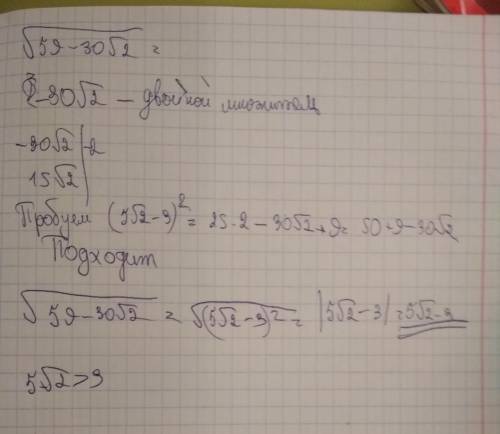 √(59-30√2) =
-30√2 - двойной множитель
-30√2 | -2
15√2 |
Пробуем (5√2-3)² = 25·2-30√2+9= 50+9-30√2
Подходит
√(59-30√2) = √(5√2-3)² = |5√2-3| = 5√2-3
5√2>3